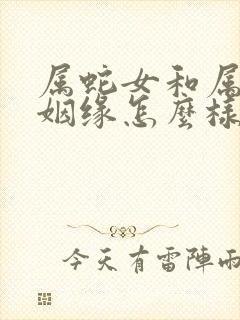 属蛇女和属
姻缘怎麼样
今天有雷陣雨